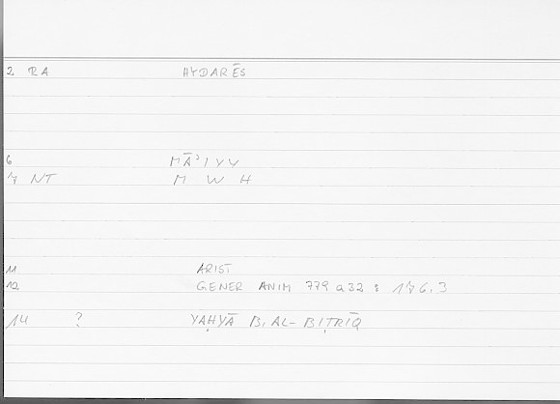 2 RA HYDARÉS
6 MĀʾIYY
7 NT M W H
11 ARIST
12 GENER ANIM 779 a32 : 176.3
14 ? YAḤYĀ B. AL-BIṬRĪQ